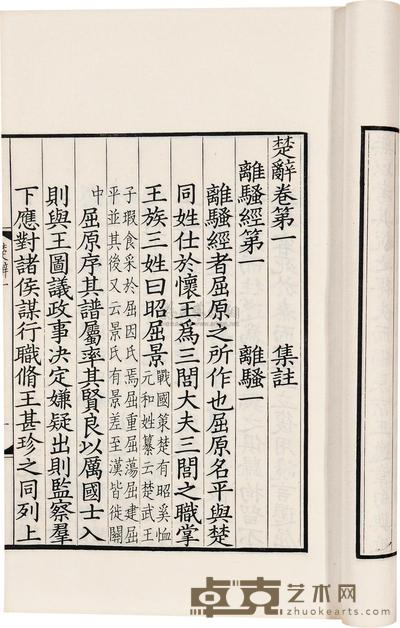 楚辭卷第一　集註
離騷經第一　離騷一
離騷經者屈原之所作也屈原名平與楚
同姓仕於懷王爲三閭大夫三閭之職掌
王族三姓曰昭屈景戰國策楚有昭奚恤
元和姓纂云楚武王
子瑕食采於屈因氏焉屈重屈蕩屈建屈
平並其後又云景氏有景差至漢皆徙關
中屈原序其譜屬率其賢良以厲國士入
則與王圖議政事決定嫌疑出則監察羣
下應對諸侯謀行職脩王甚珍之同列上
楚辭一
卓克艺术网
www.zhuokearts.com